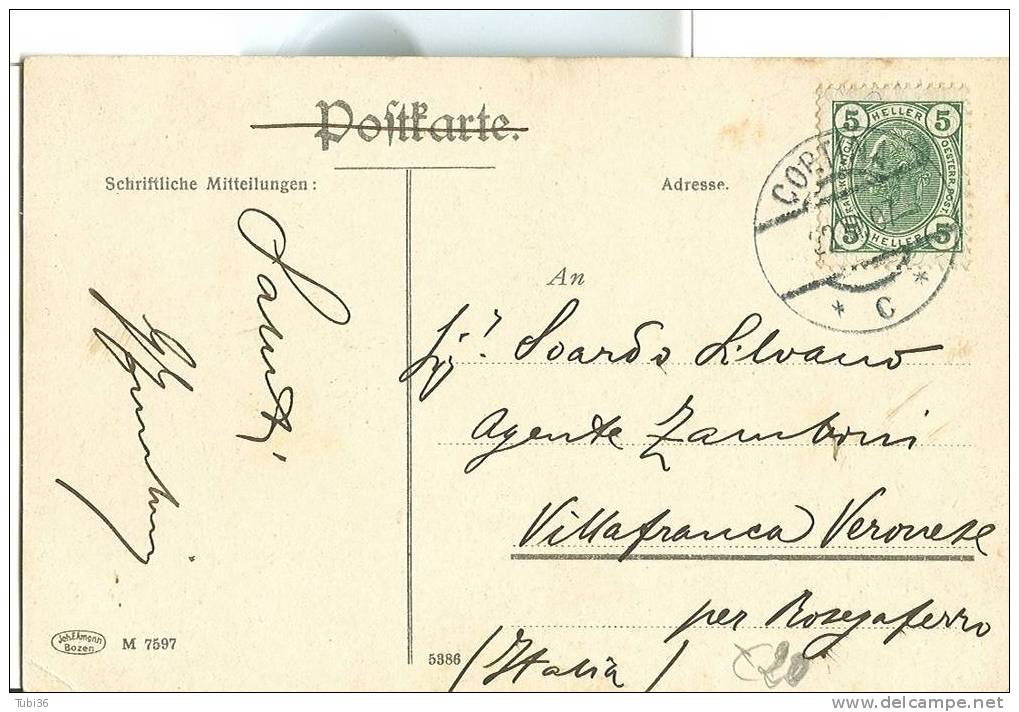 Postkarte.
Schriftliche Mitteilungen:
Adresse.
5 HELLER 5
5 HELLER 5
CORTINA
* C *
An
Saluti
Sig.r Soardo Silvano
Agente Zamboni
Villafranca Veronese
per Rosegaferro
(Italia)
20
Joh. F. Amonn
Bozen
M 7597
5386
Tubi36
delcampe.net